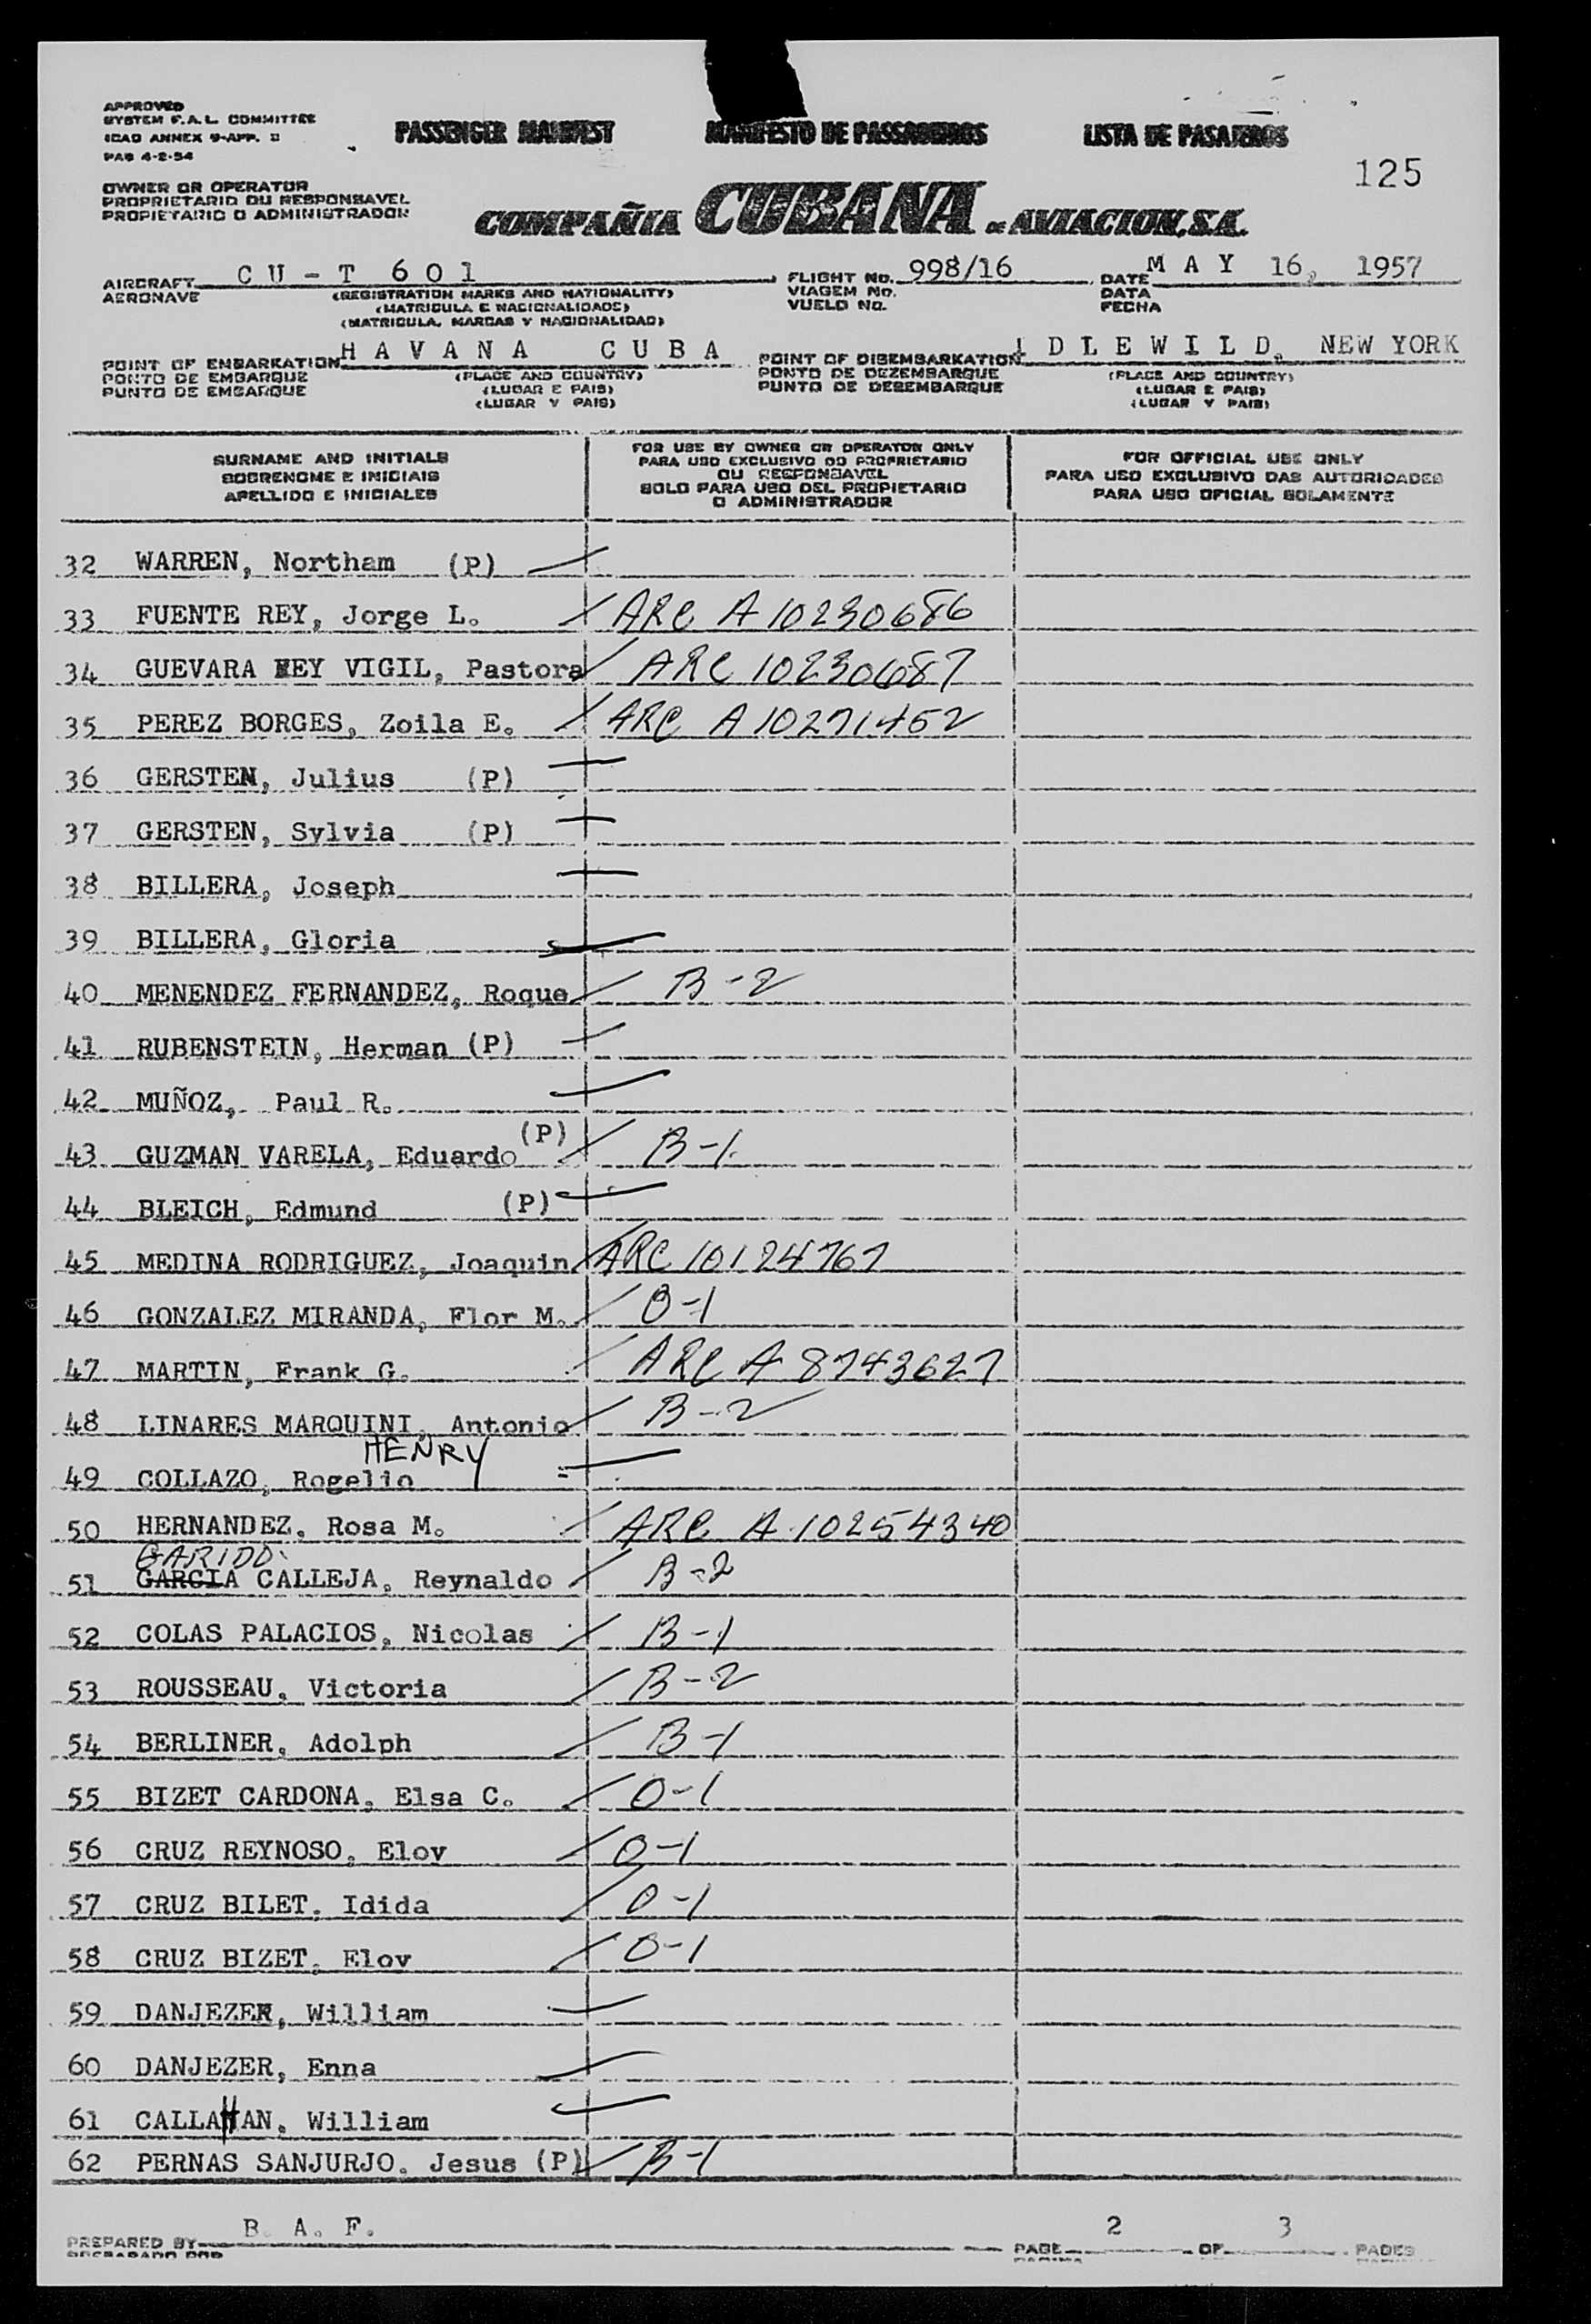 APPROVED
SYSTEM F.A.L. COMMITTEE
ICAO ANNEX 9-APP. D
PAB 4-2-54
PASSENGER MANIFEST MANIFESTO DE PASSAGEIROS LISTA DE PASAJEROS
125
OWNER OR OPERATOR
PROPRIETARIO OU RESPONSAVEL
PROPIETARIO O ADMINISTRADOR
COMPAÑIA CUBANA DE AVIACION, S.A.
AIRCRAFT CU-T 601 FLIGHT No. 998/16 DATE MAY 16, 1957
AERONAVE (REGISTRATION MARKS AND NATIONALITY) VIAGEM No. DATA
(MATRICULA E NACIONALIDADE) VUELO No. FECHA
(MATRICULA, MARCAS Y NACIONALIDAD)
POINT OF EMBARKATION HAVANA CUBA POINT OF DISEMBARKATION IDLEWILD, NEW YORK
PONTO DE EMBARQUE (PLACE AND COUNTRY) PONTO DE DEZEMBARQUE (PLACE AND COUNTRY)
PUNTO DE EMBARQUE (LUGAR E PAIS) PUNTO DE DESEMBARQUE (LUGAR E PAIS)
(LUGAR Y PAIS) (LUGAR Y PAIS)
SURNAME AND INITIALS
SOBRENOME E INICIAIS
APELLIDO E INICIALES
FOR USE BY OWNER OR OPERATOR ONLY
PARA USO EXCLUSIVO DO PROPRIETARIO
OU RESPONSAVEL
SOLO PARA USO DEL PROPIETARIO
O ADMINISTRADOR
FOR OFFICIAL USE ONLY
PARA USO EXCLUSIVO DAS AUTORIDADES
PARA USO OFICIAL SOLAMENTE
32 WARREN, Northam (P)
33 FUENTE REY, Jorge L. ARC A10230686
34 GUEVARA REY VIGIL, Pastora ARC 10230687
35 PEREZ BORGES, Zoila E. ARC A10271452
36 GERSTEN, Julius (P)
37 GERSTEN, Sylvia (P)
38 BILLERA, Joseph
39 BILLERA, Gloria
40 MENENDEZ FERNANDEZ, Roque B-2
41 RUBENSTEIN, Herman (P)
42 MUÑOZ, Paul R.
43 GUZMAN VARELA, Eduardo (P) B-1
44 BLEICH, Edmund (P)
45 MEDINA RODRIGUEZ, Joaquin ARC 10124767
46 GONZALEZ MIRANDA, Flor M. 0-1
47 MARTIN, Frank G. ARC A 8743627
48 LINARES MARQUINI, Antonio B-2
HENRY
49 COLLAZO, Rogelio
50 HERNANDEZ, Rosa M. ARC A 10254340
GARIDO
51 GARCIA CALLEJA, Reynaldo B-2
52 COLAS PALACIOS, Nicolas B-1
53 ROUSSEAU, Victoria B-2
54 BERLINER, Adolph B-1
55 BIZET CARDONA, Elsa C. 0-1
56 CRUZ REYNOSO, Eloy 0-1
57 CRUZ BILET, Idida 0-1
58 CRUZ BIZET, Eloy 0-1
59 DANJEZER, William
60 DANJEZER, Enna
61 CALLAHAN, William
62 PERNAS SANJURJO, Jesus (P) B-1
PREPARED BY B. A. F. PAGE 2 OF 3 PAGES